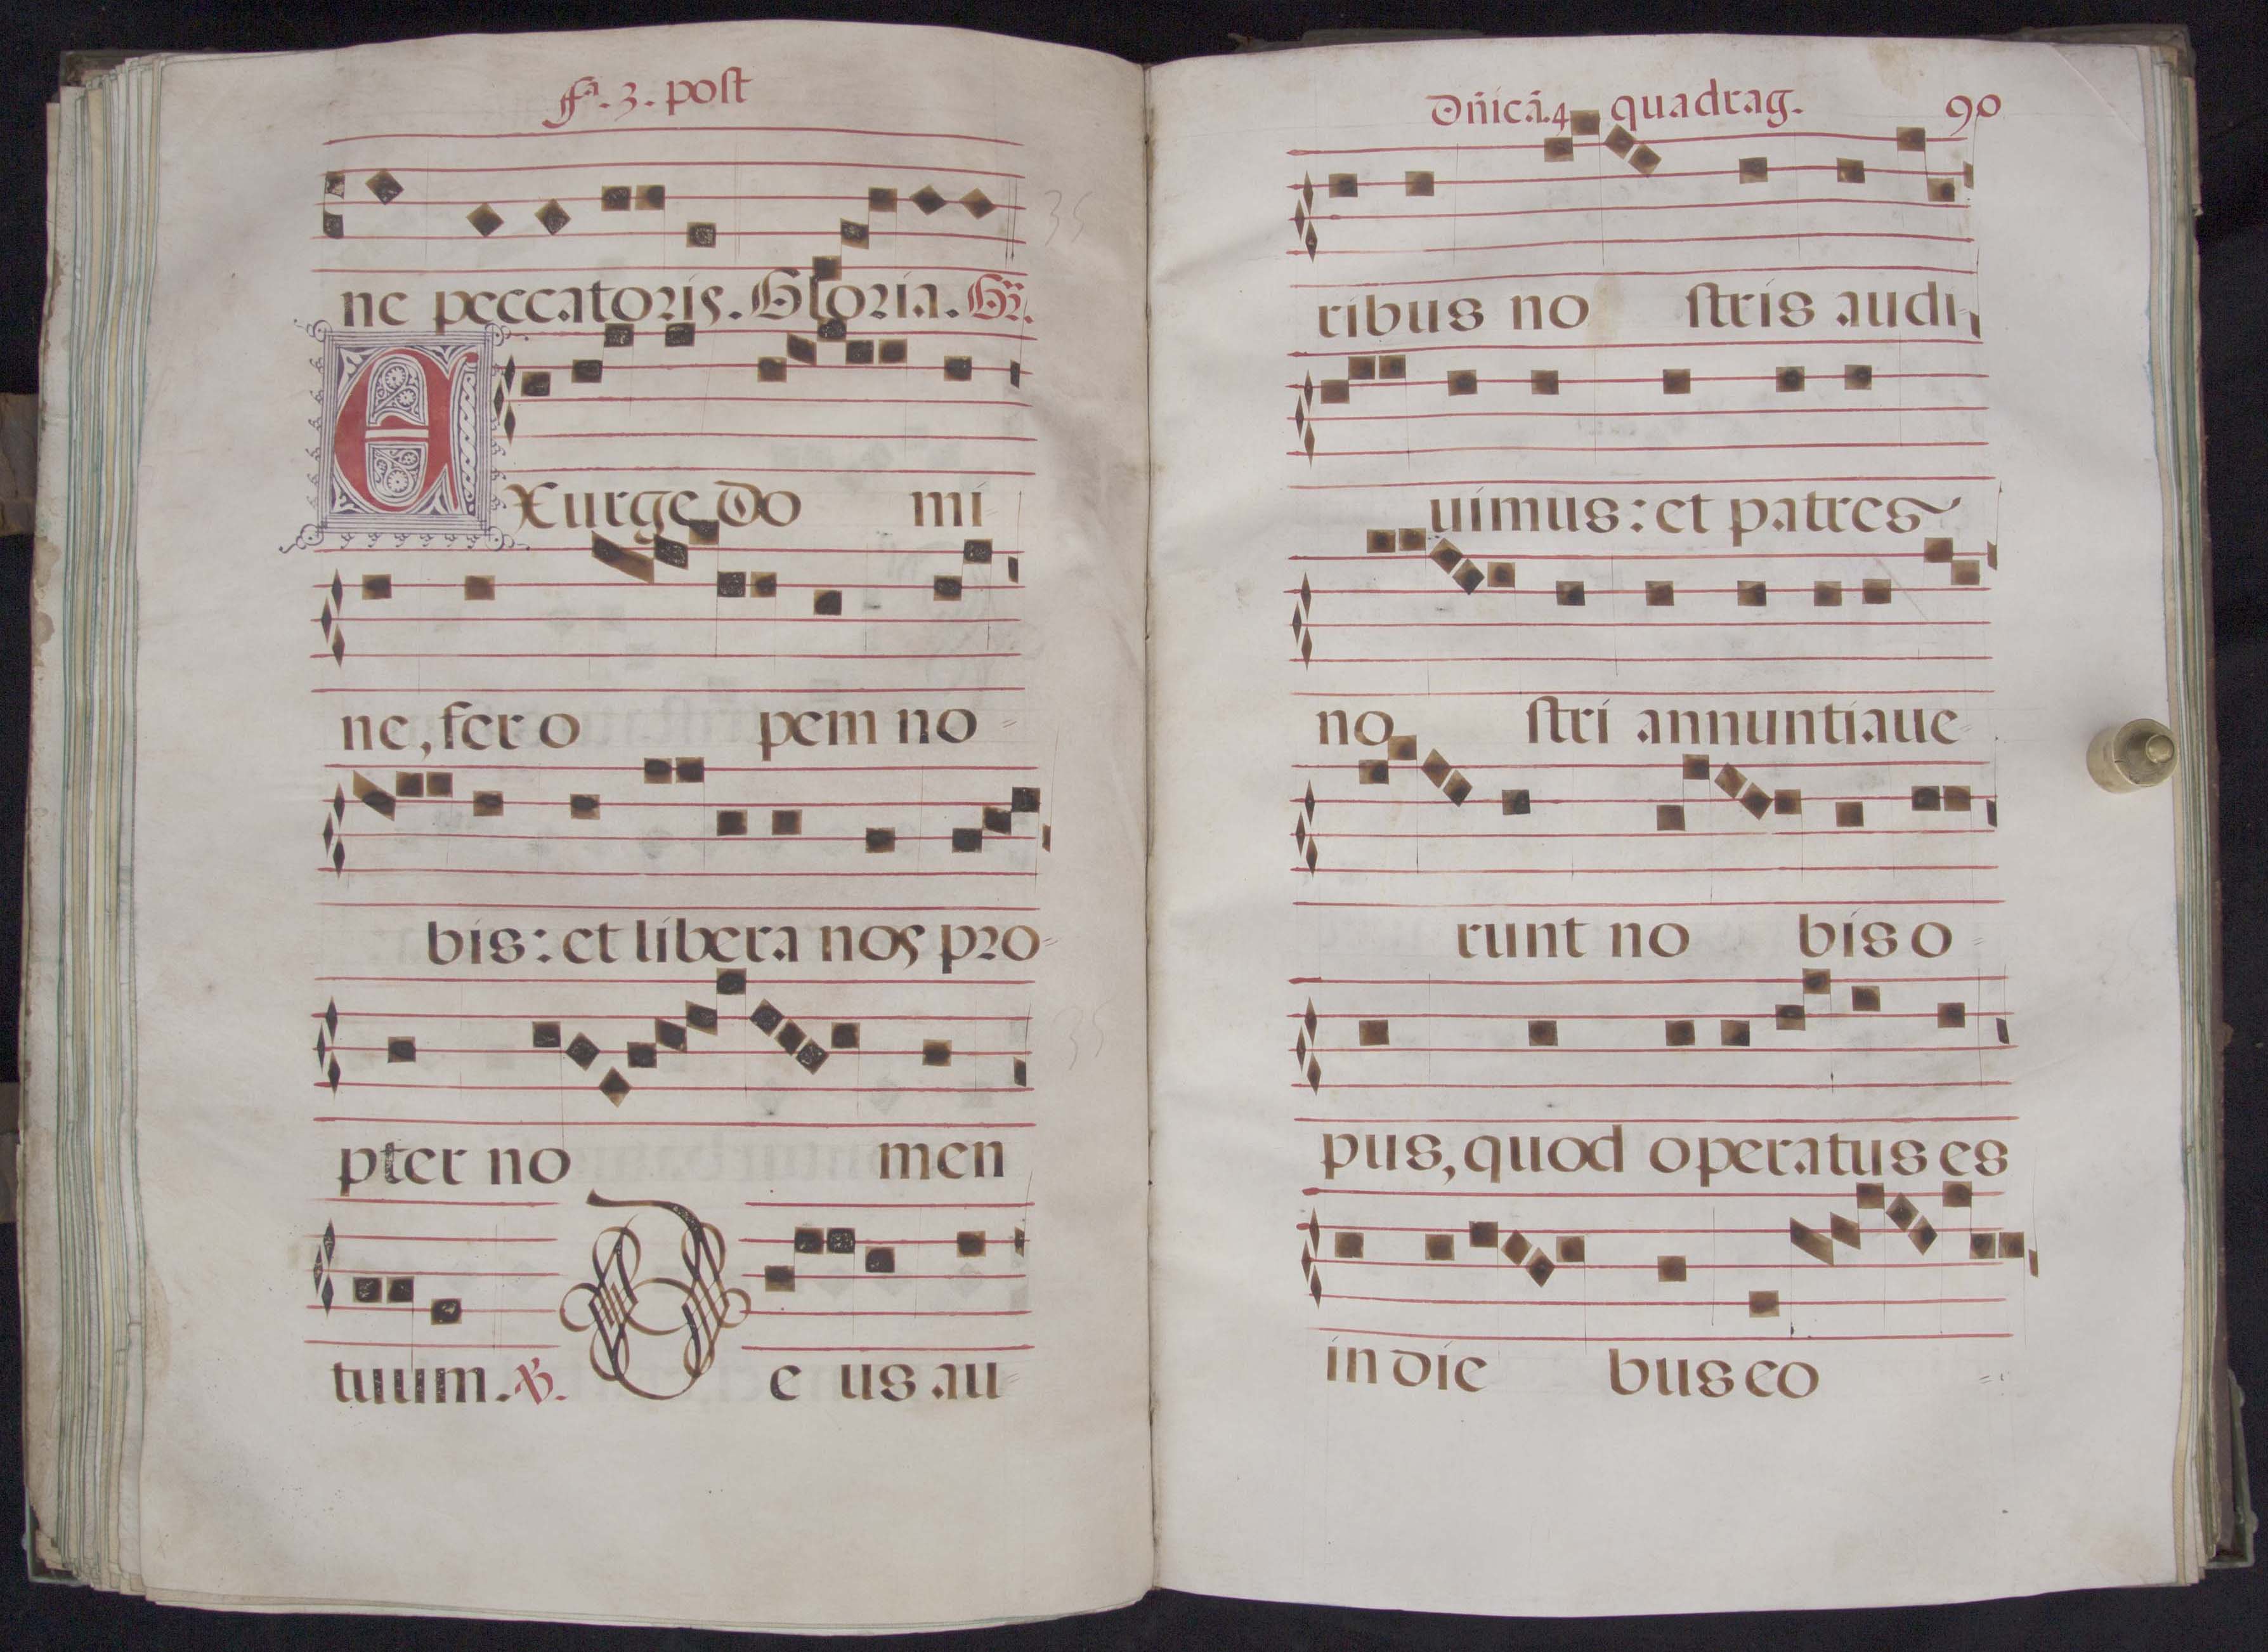 fª. 3. post
ne peccatoris. Gloria. Gr̃.
EXurge Do mi-
ne, fer o pem no-
bis: et libera nos pro-
pter no men
tuum. ℣. De us au-
35
35
Dñicã. 4 quadrag. 90
ribus no stris audi-
uimus: et patres
no stri annuntiaue-
runt no bis o-
pus, quod operatus es
in die bus eo -